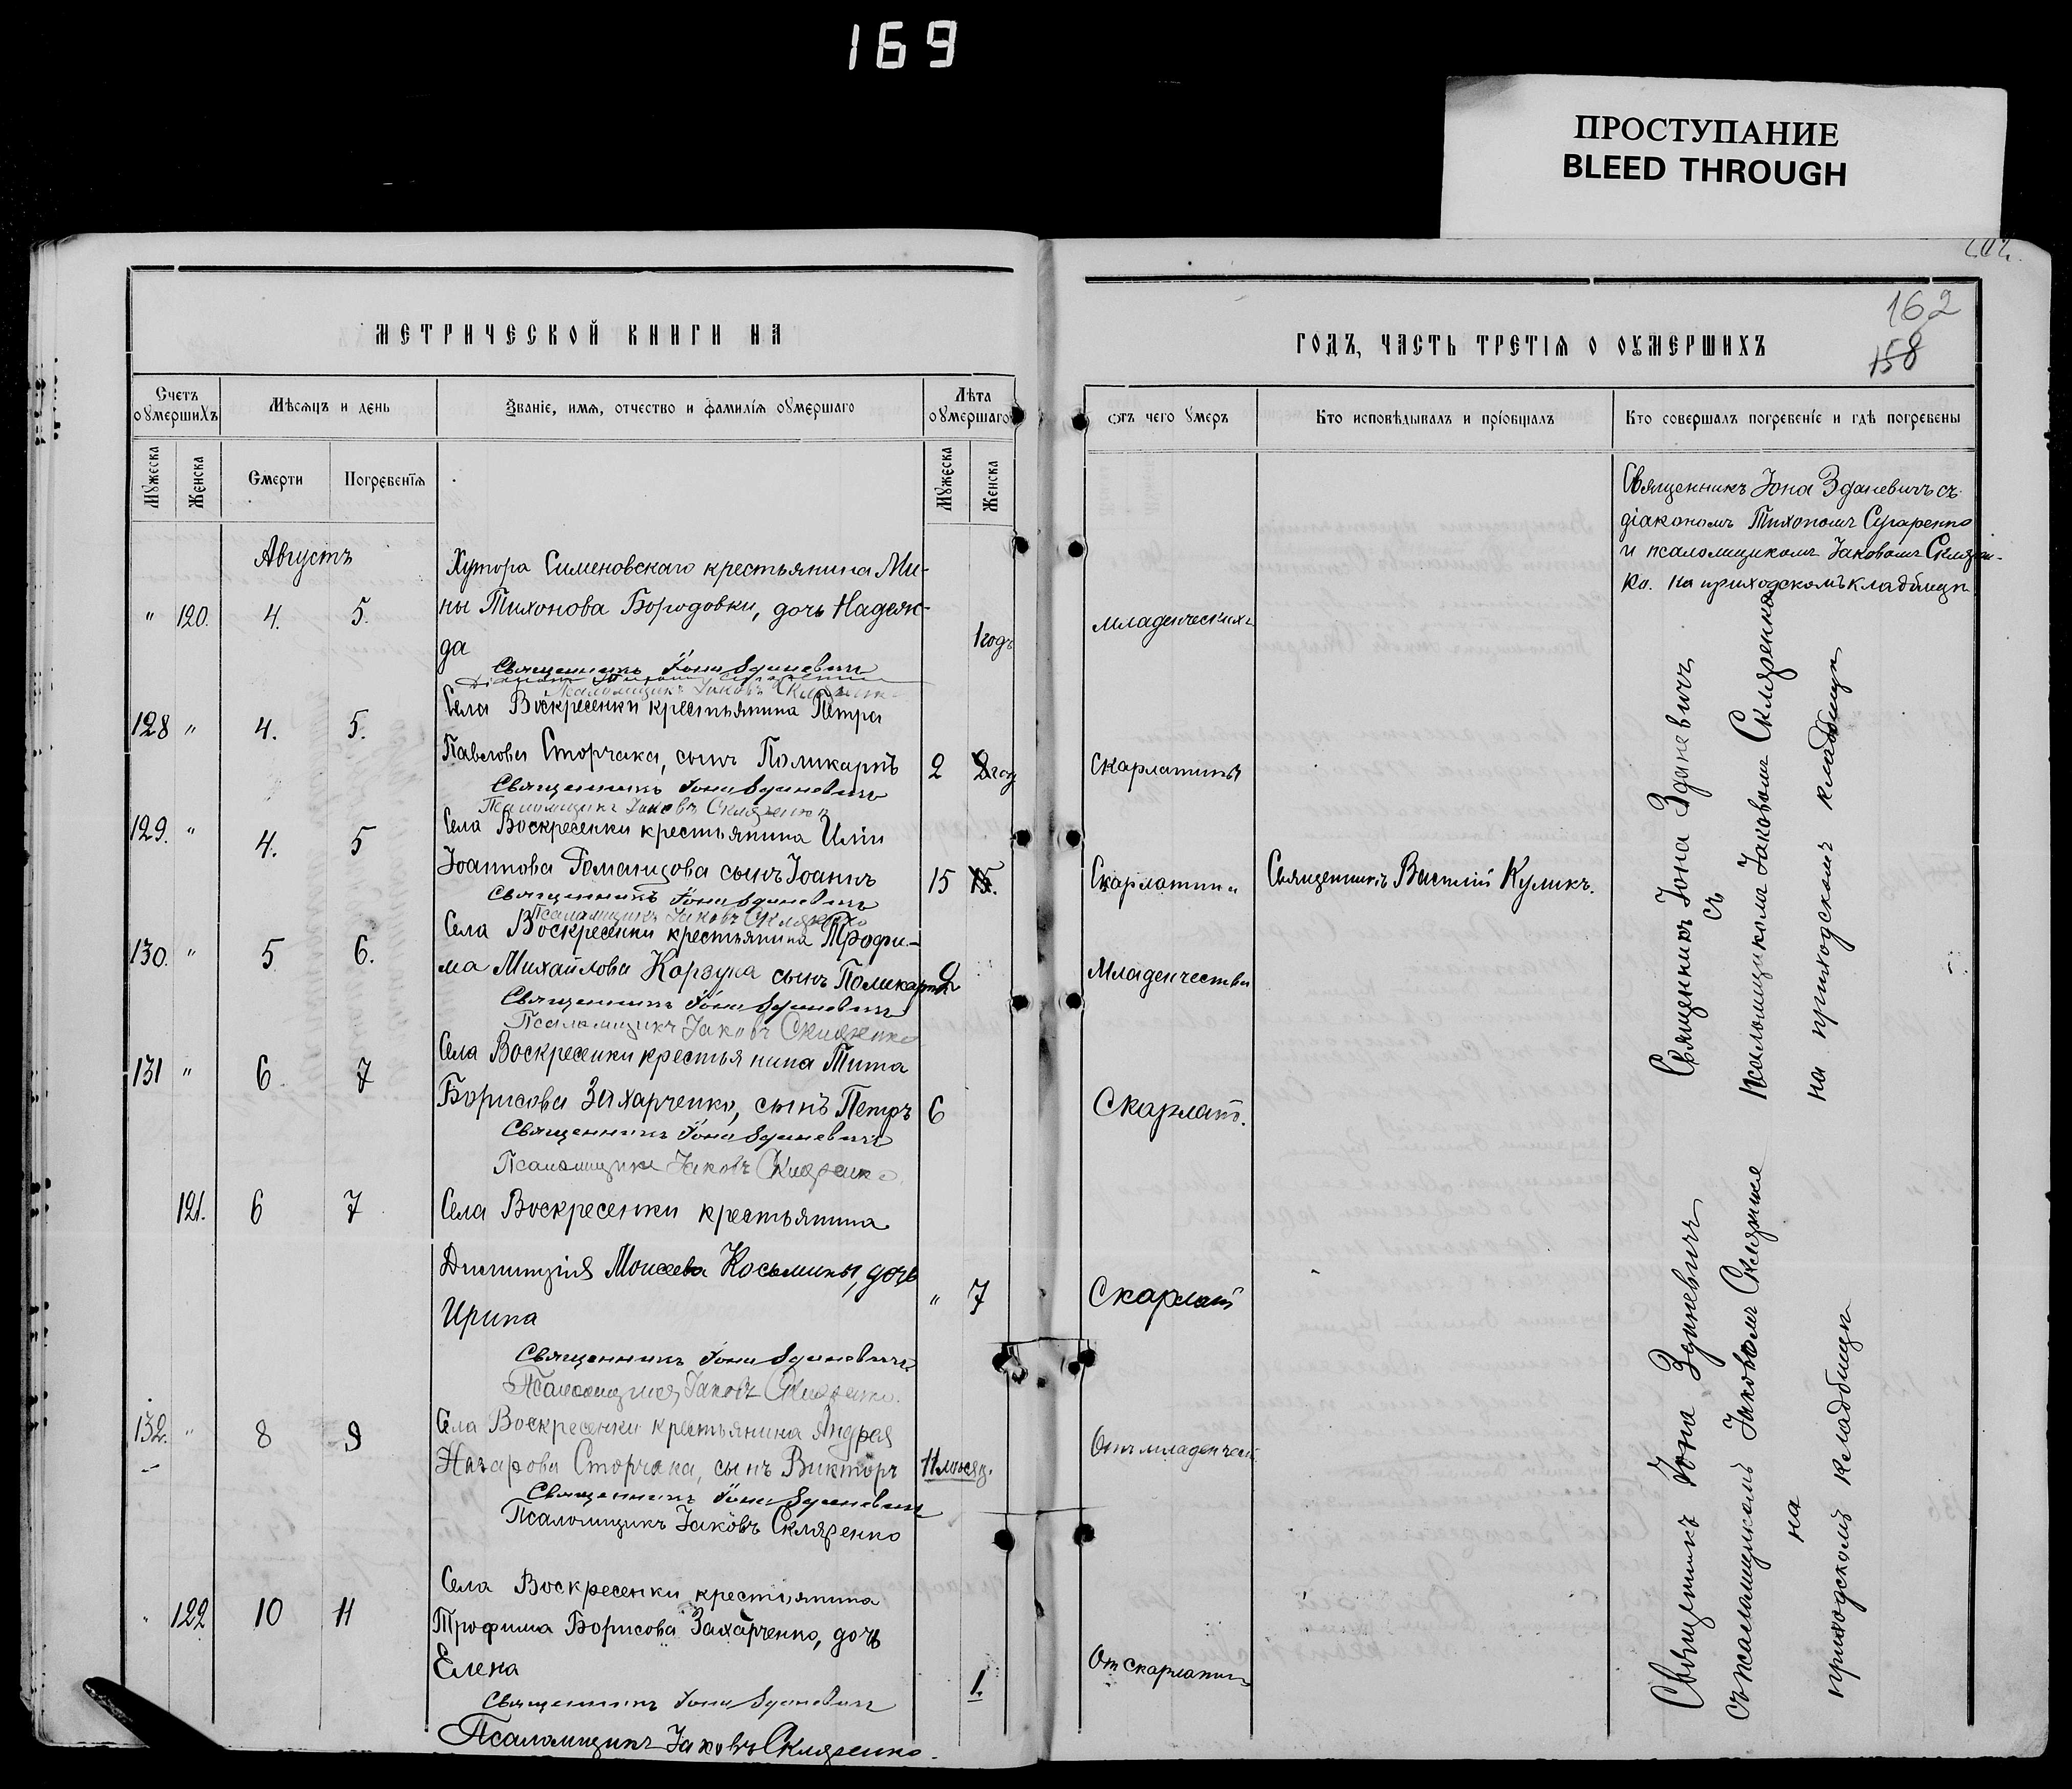 169
ПРОСТУПАНИЕ
BLEED THROUGH
МЕТРИЧЕСКОЙ КНИГИ НА
Счетъ оумершихъ
Мѣсяцъ и день
Званіе, имя, отчество и фамилія оумершаго
Лѣта оумершаго
Мужеска
Женска
Смерти
Погребенія
Мужеска
Женска
Августъ
Хутора Сименовскаго крестьянина Ми-
" 120. 4. 5. ны Тихонова Бородовки, дочь Надеж-
да 1 годъ
Священникъ Іона Зданевичъ
Псаломщикъ Іаковъ Скляренко
Села Воскресенки крестьянина Петра
128 " 4. 5.
Павлова Сторчака, сынъ Поликарпъ 2
Священникъ Іона Зданевичъ
Псаломщикъ Іаковъ Скляренко
Села Воскресенки крестьянина Иліи
129. " 4. 5
Іоаннова Романцова сынъ Іоаннъ 15 15.
Священникъ Іона Зданевичъ
Псаломщикъ Іаковъ Скляренко
Села Воскресенки крестьянина Трофи-
130. " 5 6.
ма Михайлова Корзуна сынъ Поликарпъ
Священникъ Іона Зданевичъ
Псаломщикъ Іаковъ Скляренко
Села Воскресенки крестьянина Тита
131 " 6 7
Борисова Захарченко, сынъ Петръ 6
Священникъ Іона Зданевичъ
Псаломщикъ Іаковъ Скляренко
121. 6 7 Села Воскресенки крестьянина
Димитрія Моисеева Косьмины, дочь
Ирина " 7
Священникъ Іона Зданевичъ
Псаломщикъ Іаковъ Скляренко.
132. " 8 9 Села Воскресенки крестьянина Андрея
Назарова Сторчака, сынъ Викторъ 11 мѣсяц.
Священникъ Іона Зданевичъ
Псаломщикъ Іаковъ Скляренко
Села Воскресенки крестьянина
" 122 10 11
Трофима Борисова Захарченко, дочь
Елена 1.
Священникъ Іона Зданевичъ
Псаломщикъ Іаковъ Скляренко.
162
158
ГОДЪ, ЧАСТЬ ТРЕТІЯ О ОУМЕРШИХЪ
отъ чего умеръ
Кто исповѣдывалъ и пріобщалъ
Кто совершалъ погребеніе и гдѣ погребены
Священникъ Іона Зданевичъ съ
діакономъ Тихономъ
и псаломщикомъ Іаковомъ Склярен-
ко. на приходскомъ кладбищѣ
младенческихъ
Скарлатины
Скарлатин
Священникъ Василій Куликъ.
Младенчества
Скарлат.
Скарлат
Отъ младенчест
От скарлатин
Священникъ Іона Зданевичъ
съ
псаломщикомъ Іаковомъ Скляренкой
на приходскомъ кладбищѣ
Священникъ Іона Зданевичъ
съ псаломщикомъ Іаковомъ Скляренко
на
приходскомъ кладбищѣ